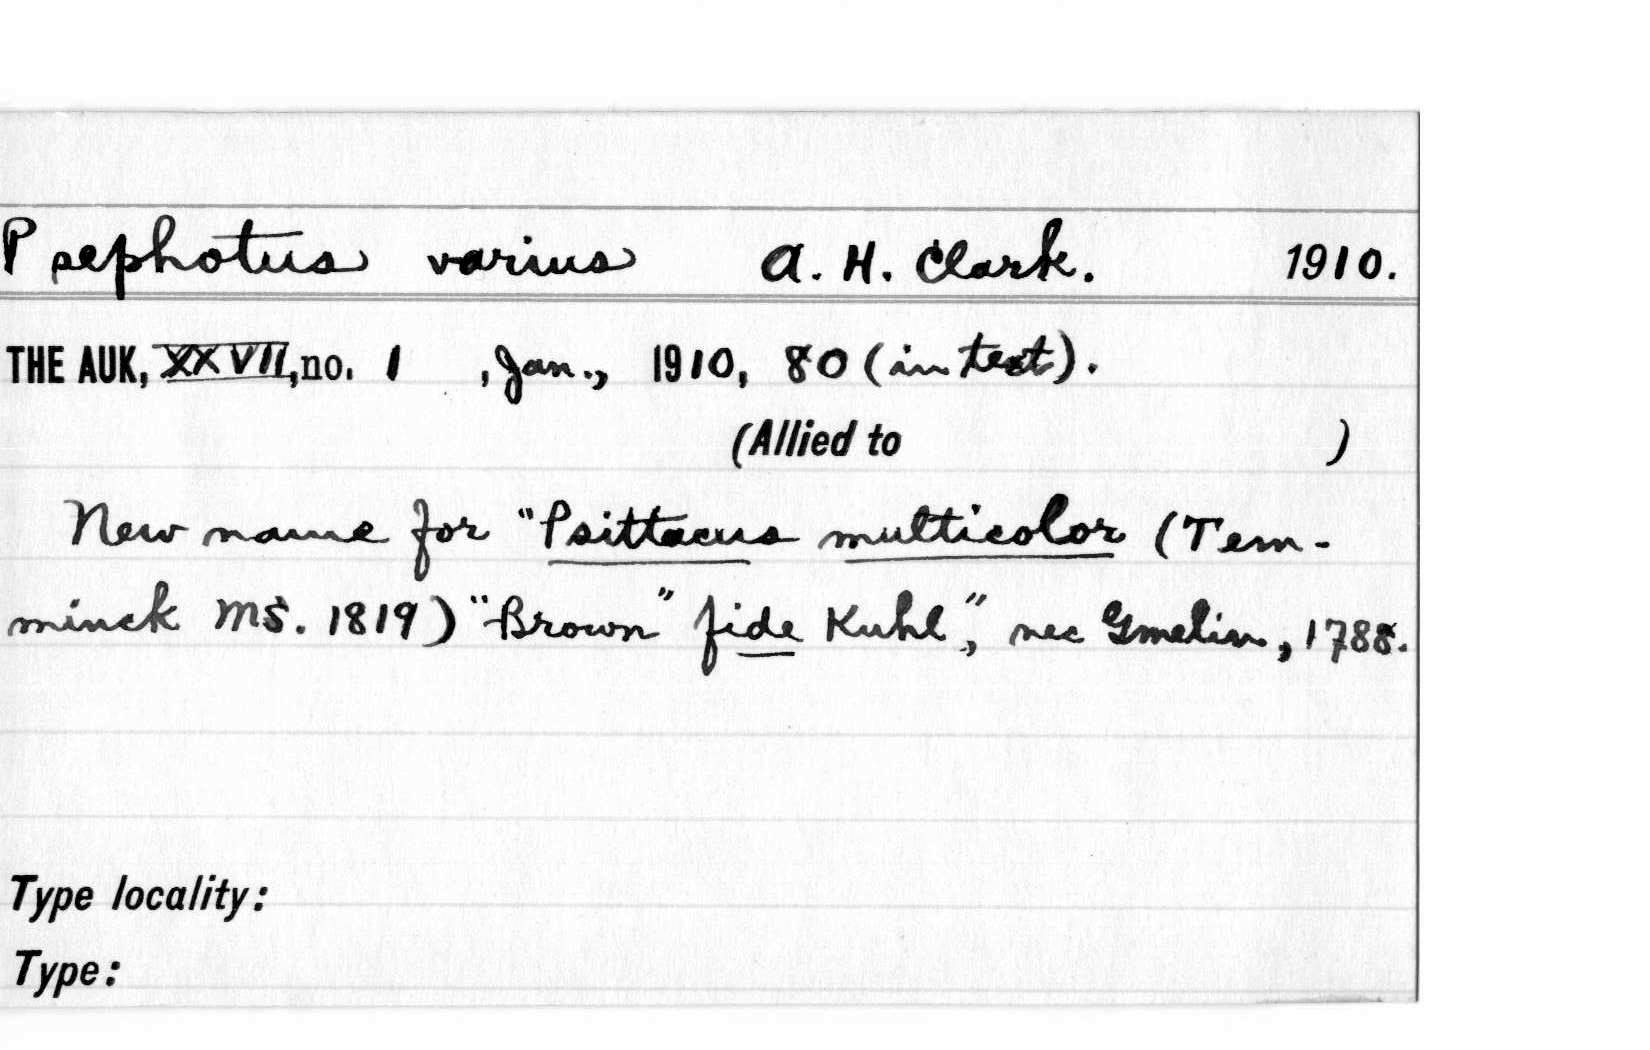 Psephotus varius A. H. Clark. 1910.
THE AUK, XXVII, no. 1 , Jan., 1910, 80 (in text).
(Allied to )
New name for "Psittacus multicolor (Tem-
minck MS. 1819) "Brown" fide Kuhl", nec Gmelin, 1788.
Type locality:
Type: